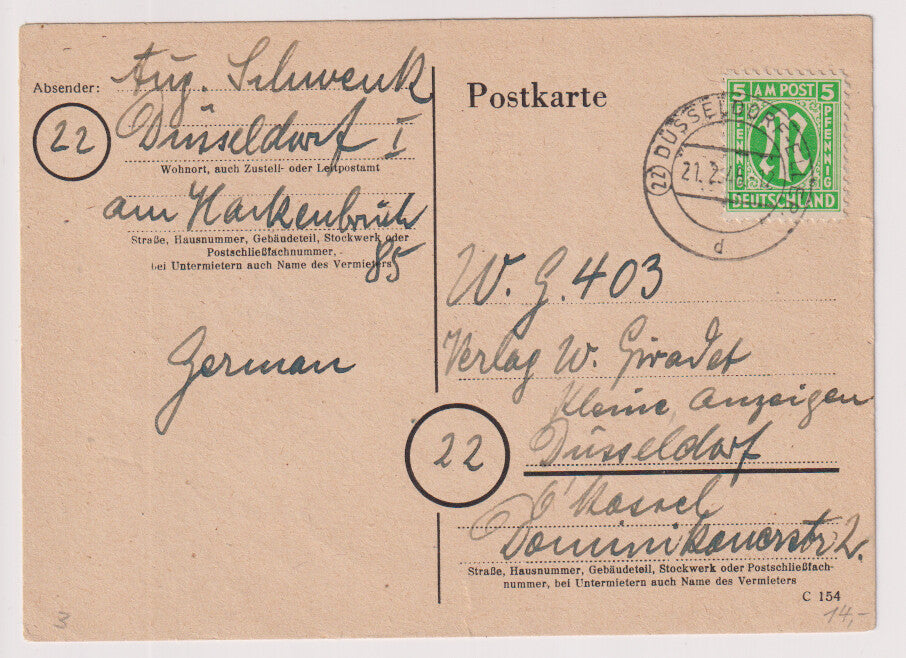 Absender:
Aug. Schwenk
22
Düsseldorf I
Wohnort, auch Zustell- oder Leitpostamt
am Hackenbruch
Straße, Hausnummer, Gebäudeteil, Stockwerk oder
Postschließfachnummer,
bei Untermietern auch Name des Vermieters
85
German
Postkarte
5 AM POST 5
PFENNIG
PFENNIG
DEUTSCHLAND
(22) DÜSSELDORF
21. 2. 46
d
W. G. 403
Verlag W. Giradet
Kleine Anzeigen
22
Düsseldorf
Kassel
Dominikanerstr 2.
Straße, Hausnummer, Gebäudeteil, Stockwerk oder Postschließfach-
nummer, bei Untermietern auch Name des Vermieters
C 154
3
14,-